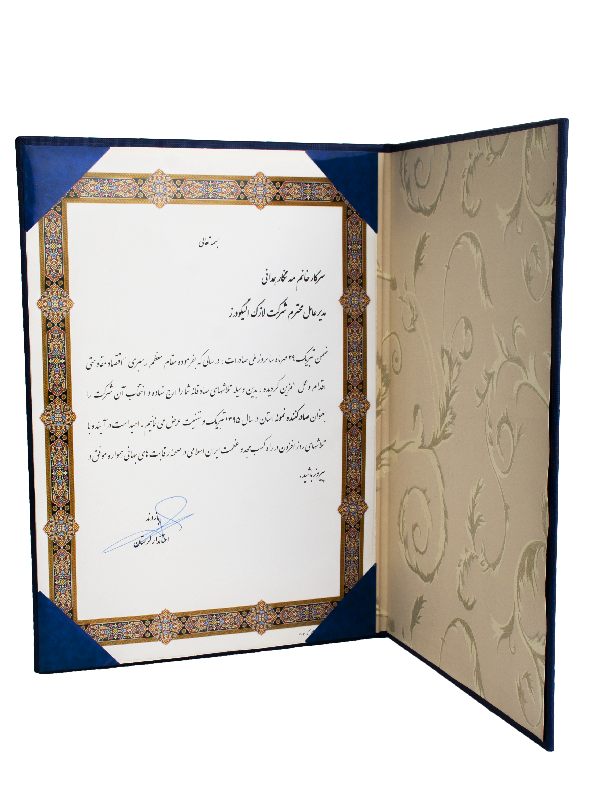 بسمه تعالی
سرکار خانم مه نگار همدانی
مدیرعامل محترم شرکت لازک الیگودرز
ضمن تبریک ۲۹ مهرماه سالروز ملی صادرات، در سالی که بفرموده مقام معظم رهبری "اقتصاد مقاومتی
اقدام و عمل" مزین گردیده، بدین وسیله تلاشهای صادقانه شما را ارج نهاده و انتخاب آن شرکت را
بعنوان صادرکننده نمونه استان در سال ۱۳۹۵ تبریک و تهنیت عرض می نمایم. امید است در آینده با
تلاشهای روزافزون در راه کسب مجد و عظمت ایران اسلامی در صحنه رقابت های جهانی همواره موفق و
پیروز باشید.
بازوند
استاندار لرستان